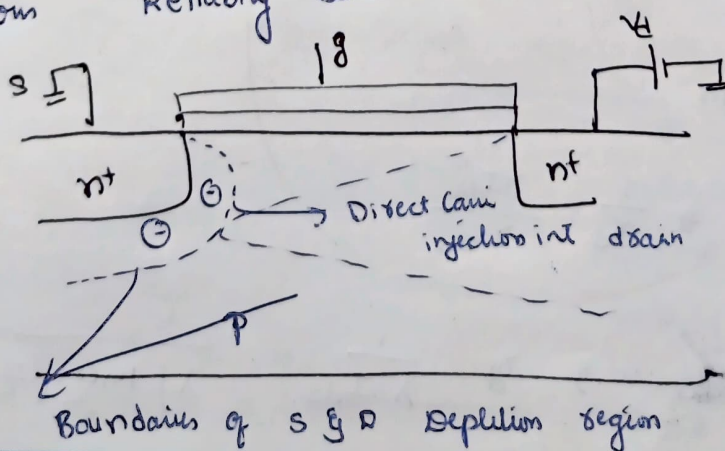 Reliabling
g
S
Vd
n+
n+
Direct Carri
injection int drain
P
Boundaries of S & D Deplition region